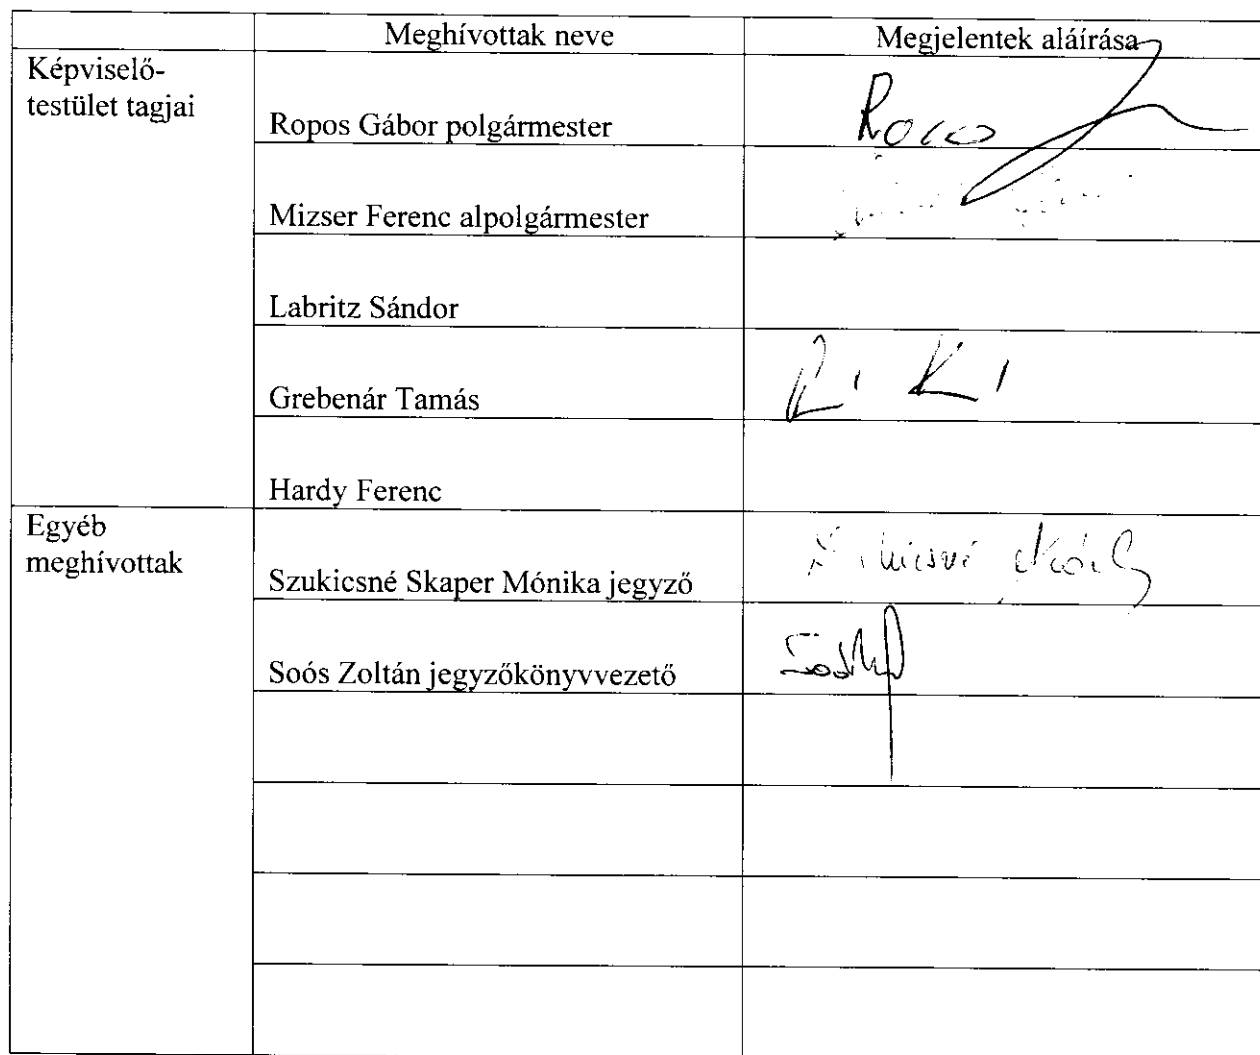 Meghívottak neve
Megjelentek aláírása
Képviselő-
testület tagjai
Ropos Gábor polgármester
Mizser Ferenc alpolgármester
Labritz Sándor
Grebenár Tamás
Hardy Ferenc
Egyéb
meghívottak
Szukicsné Skaper Mónika jegyző
Soós Zoltán jegyzőkönyvvezető